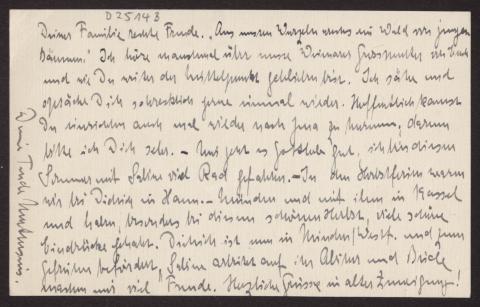 D 25143
Deiner Familie rechte Freude. „Aus unseren Wurzeln wuchs ein Wald von jungen
Bäumen." Ich höre manchmal über unsre Weimarer
und wie Du weiter der Mittelpunkt geblieben bist. Ich sähe und
spräche Dich schrecklich gerne einmal wieder. Hoffentlich kannst
Du einrichten auch mal wieder nach Jena zu kommen, darum
bitte ich Dich sehr. – Uns geht es Gottlob gut, ich bin diesen
Sommer mit Sabine viel Rad gefahren. – In den Herbstferien waren
wir bei Dietrich in Hann. – Münden und mit ihm in Kassel
und haben, besonders bei diesem schönen Herbst, viele schöne
Eindrücke gehabt. Dietrich ist nun in Minden/Westf. und zum
befördert, Sabine arbeitet auf ihr Abitur und Beide
machen mir viel Freude. Herzliche Grüsse in alter Zuneigung!
Deine